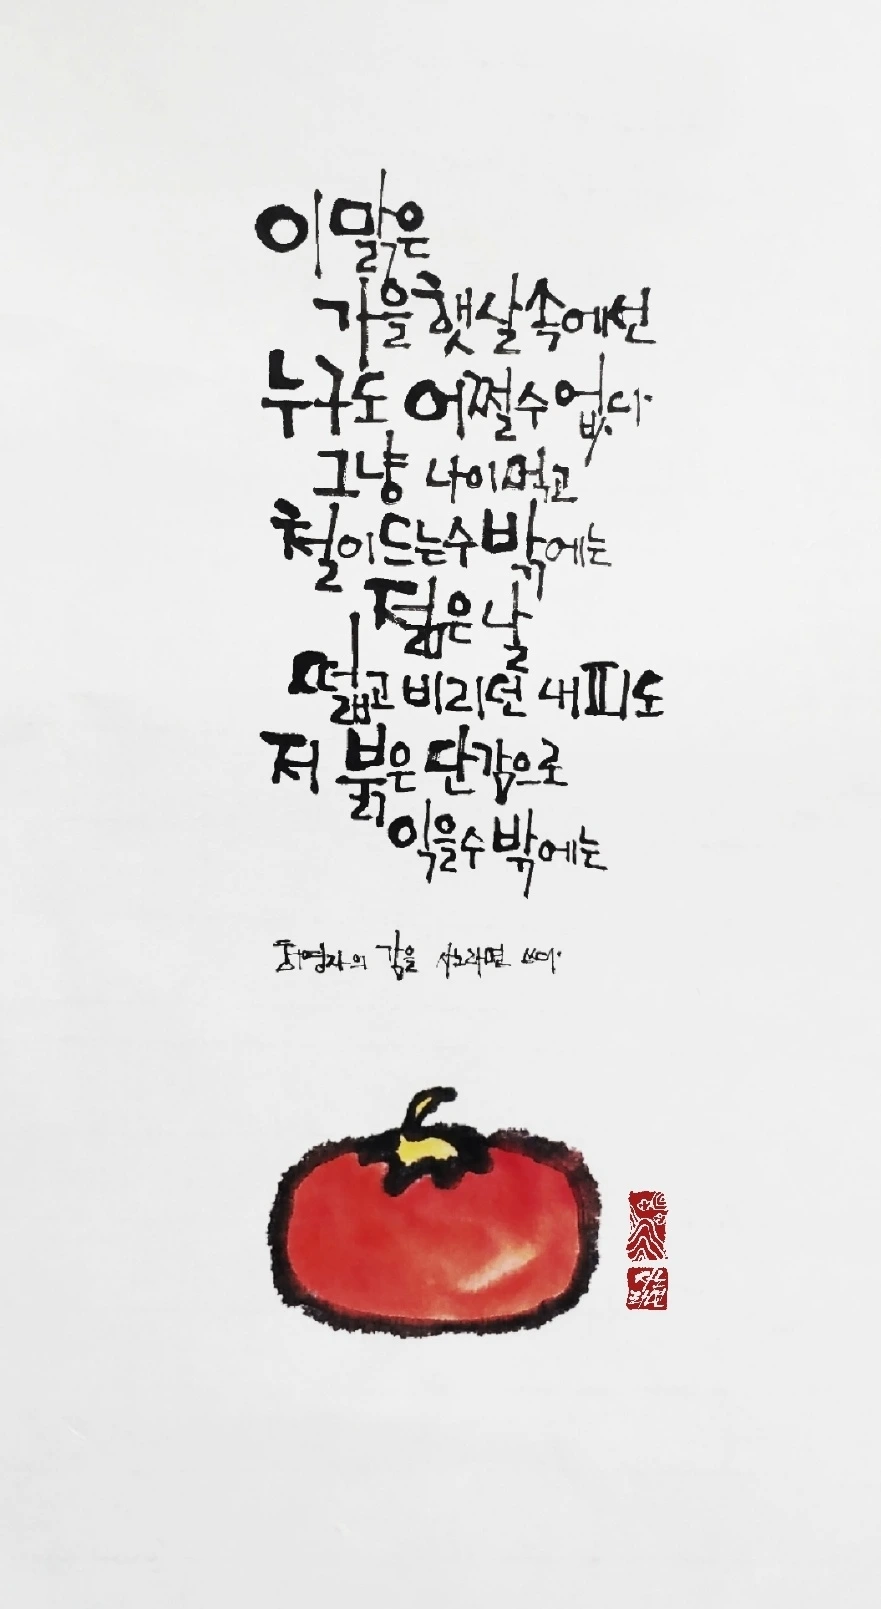 이 맑은
가을 햇살 속에선
누구도 어쩔 수 없다
그냥 나이 먹고
철이 드는 수 밖에는
젊은 날
떫고 비리던 내 피도
저 붉은 단감으로
익을 수 밖에는
허영자의 감을 사노라면 쓰다.
사노라면